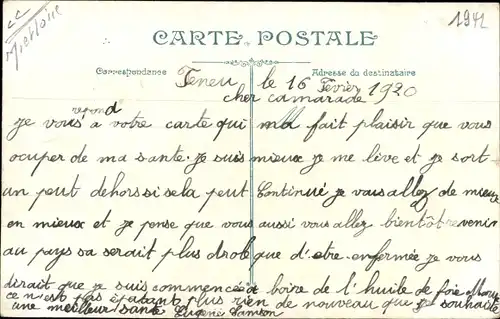 1942
CARTE POSTALE
Correspondance
Adresse du destinataire
le 16 Février 1920
cher camarade
repond
je vous a votre carte qui ma fait plaisir que vous
ocuper de ma sante. je suis mieux je me lève et je sort
un peut dehors si sela peut Continué je vais allez de mieux
en mieux et je pense que vous aussi vous allez bientôt revenir
au pays sa serait plus drole que d'etre enfermée je vous
dirait que je suis commencée a boire de l'huile de foie Morue
ce n'est pas épatant plus rien de nouveau que je souhaite
une meilleur santé Eugène Samson